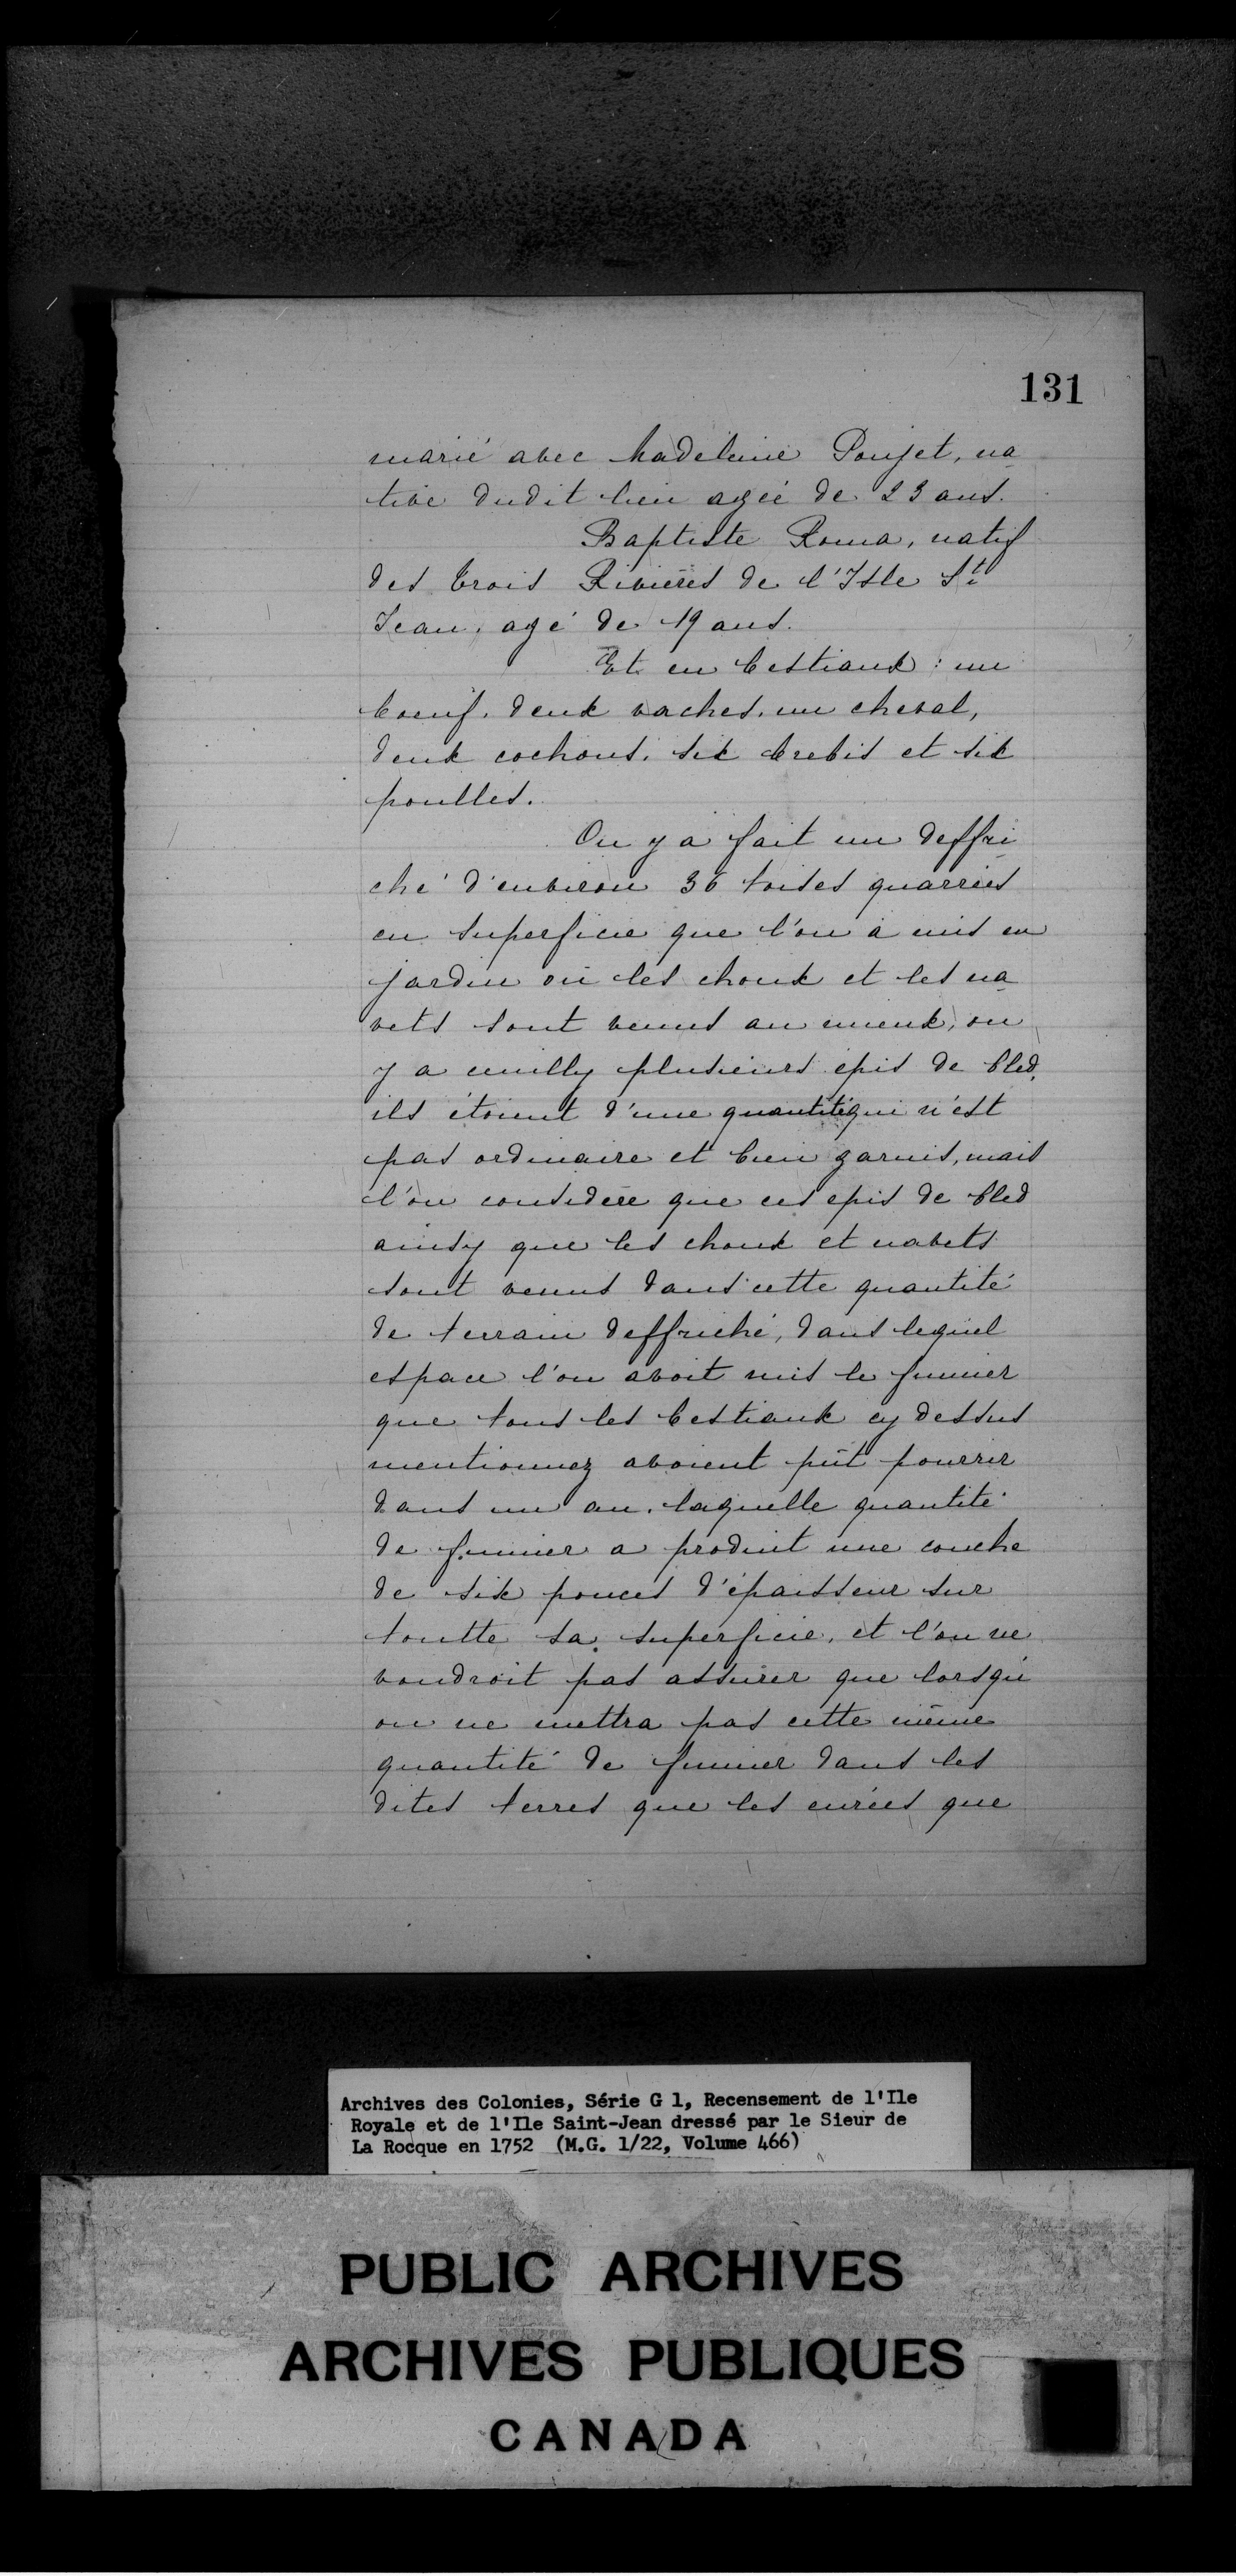 131
marié avec Madeleine Poujet, na
tive dudit lieu agée de 23 ans.
Baptiste Roma, natif
des trois Rivières de l'Isle St
Jean, agé de 19 ans.
Et en bestiaux : un
boeuf, deux vaches, un cheval,
deux cochons, six brebis et six
poulles.
On y a fait un deffri
ché d'environ 36 toises quarrées
en superficie que l'on a mis en
jardin où les choux et les na
vets sont venus au mieux, on
y a cuilly plusieurs épis de bled,
ils étoient d'une quantité qui n'est
pas ordinaire et bien garnis, mais
l'on considère que ces epis de bled
ainsy que les choux et navets
sont venus dans cette quantité
de terrain deffriché, dans lequel
espace l'on avoit mis le fumier
que tous les bestiaux cy dessus
mentionnez avoient pût pourrir
dans un an, laquelle quantité
de fumier a produit une couche
de six pouces d'épaisseur sur
toutte sa superficie, et l'on ne
voudroit pas assurer que lorsqu'
on ne mettra pas cette même
quantité de fumier dans les
dites terres que les que
Archives des Colonies, Série G 1, Recensement de l'Ile
Royale et de l'Ile Saint-Jean dressé par le Sieur de
La Rocque en 1752 (M.G. 1/22, Volume 466)
PUBLIC ARCHIVES
ARCHIVES PUBLIQUES
CANADA